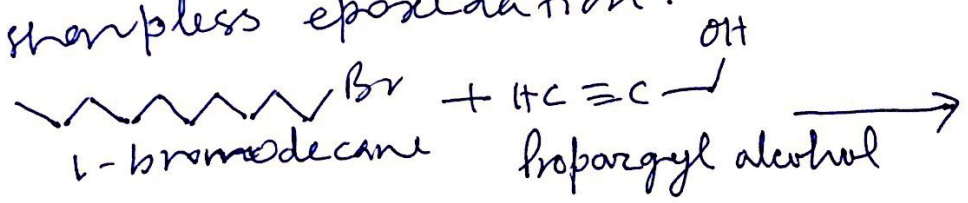 sharpless epoxidation.
Br + HC≡C OH
1-bromodecane Propargyl alcohol